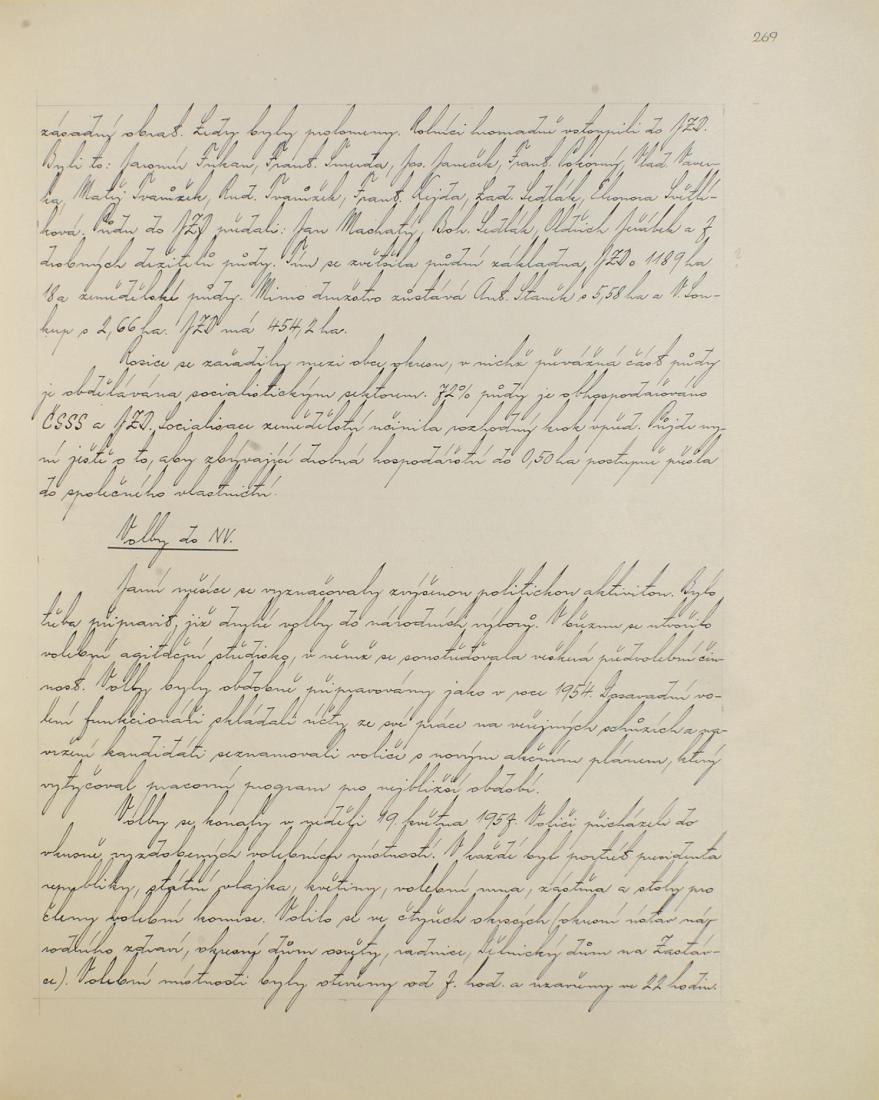 269
zásadný obrat. Ledy byly prolomeny. Rolníci hromadně vstoupili do JZD.
Byli to: Jaromír Fukan, Frant. Smerda, Jos. Janeček, Frant. Pokorný, Vlad. Vaver-
ka, Matěj Ivanžek, Rud. Ivanžek, Frant. Kejda, Lad. Sedlák, Eleonora Světlí-
ková. Půdu do JZD přidali: Jan Machatý, Boh. Sedlák, Oldřich Jeřábek a 7
drobných držitelů půdy. Tím se zvětšila půdní základna JZD o 118 9 ha
18 a zemědělské půdy. Mimo družstvo zůstává Ant. Staněk s 5,58 ha a V. Sou-
kup s 2,66 ha. JZD má 454,2 ha.
Rosice se zařadily mezi obce okresu, v nichž převážná část půdy
je obdělávána socialistickým sektorem. 72% půdy je obhospodařováno
ČSSS a JZD. Socialisace zemědělství učinila rozhodný krok vpřed. Půjde ny-
ní ještě o to, aby zbývající drobná hospodářství do 0,50 ha postupně přešla
do společného vlastnictví.
Volby do NV.
Jarní měsíce se vyznačovaly zvýšenou politickou aktivitou. Bylo
třeba připravit již druhé volby do národních výborů. V březnu se utvořilo
volební agitační středisko, v němž se soustřeďovala veškerá předvolební čin-
nost. Volby byly obdobně připravovány jako v roce 1954. Dosavadní vo-
lení funkcionáři skládali účty ze své práce na veřejných schůzích a na-
vržení kandidáti seznamovali voliče s novým akčním plánem, který
vytyčoval pracovní program pro nejbližší období.
Volby se konaly v neděli 19. května 1957. Voliči přicházeli do
vkusně vyzdobených volebních místností. V každé byl portrét presidenta
republiky, státní vlajka, květiny, volební urna, zástěna a stoly pro
členy volební komise. Volilo se ve čtyřech okrscích (okresní ústav ná-
rodního zdraví, okresní dům osvěty, radnice, Dělnický dům na Zastáv-
ce). Volební místnosti byly otevřeny od 7. hod. a uzavřeny ve 22 hodin.